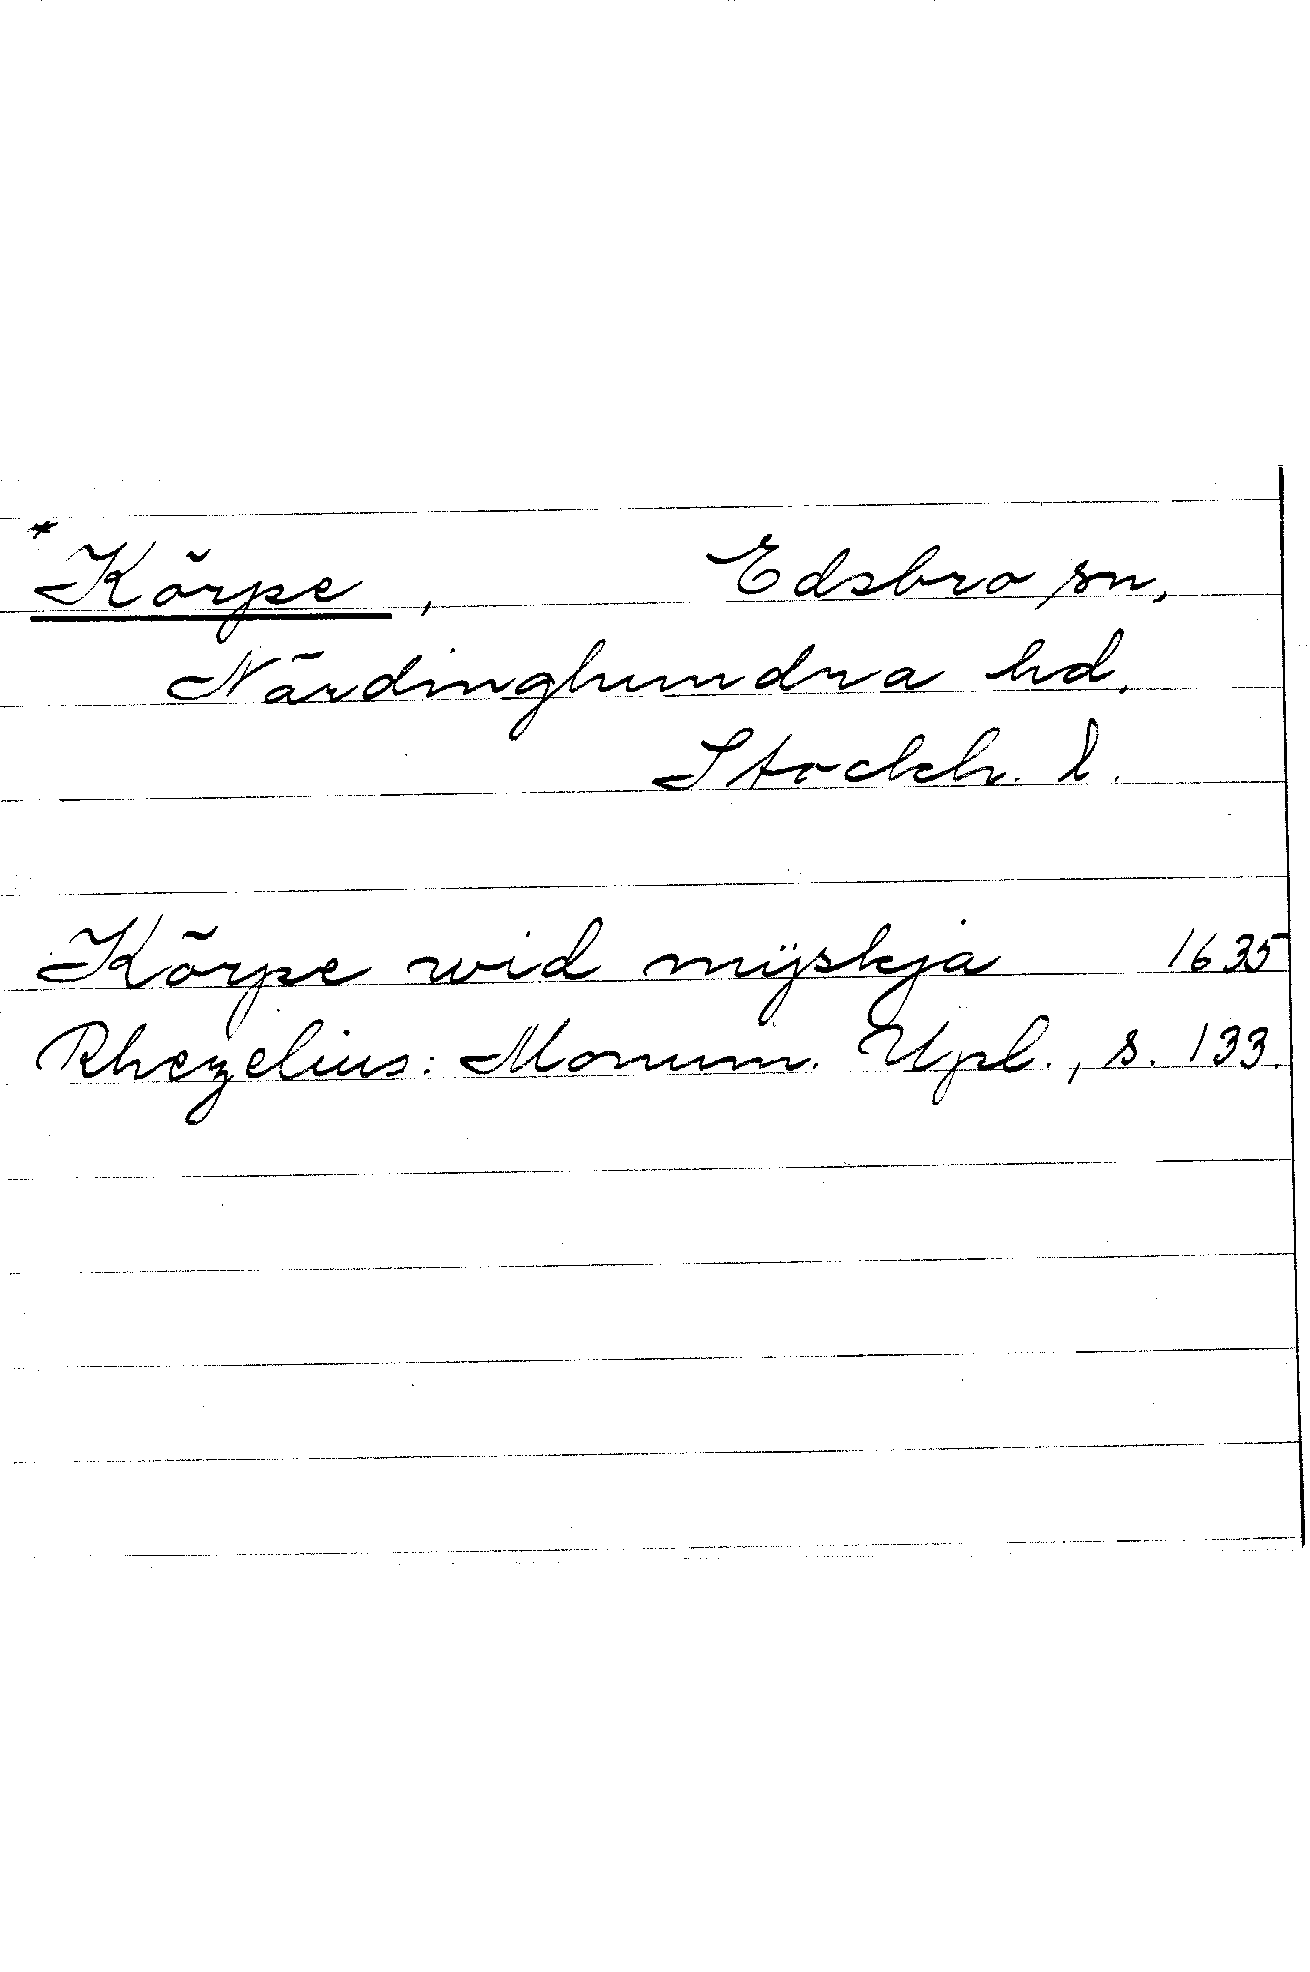 *Körpe, Edsbro sn,
Närdinghundra hd.
Stockh. l.
Körpe wid mÿskja 1635
Rhezelius: Monum. Upl., s. 133.